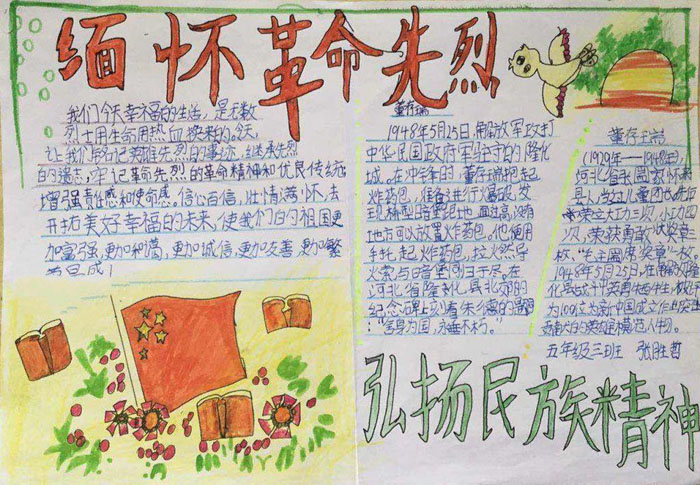 缅怀革命先烈
我们今天幸福的生活，是无数
烈士用生命用热血换来的。今天，
让我们牢记英雄先烈的事迹，继承先烈
的遗志，牢记革命先烈的革命精神和优良传统
增强责任感和使命感。信心百倍，壮情满怀，去
开拓美好幸福的未来，使我们的祖国更
加富强，更加和蔼，更加诚信，更加友善，更加繁
荣昌盛！
董存瑞
1948年5月25日，解放军攻打
中华民国政府军驻守的隆化
城。在中午时，董存瑞抱起
炸药包，准备进行爆破，发
桥型
地方可以放置炸药包，他使用
手托起炸药包，拉燃导
火索与暗堡同归于尽，在
河北省隆化县北郊的
纪念碑上刻着朱德的
"舍身为国，永垂不朽。"
董存瑞
(1929年——1948年)，
河北省
县人，当过儿童团长，先
荣立大功三次，小功四
次，荣获勇敢奖章三
枚，"毛主席奖章"一枚，
1948年5月25日，在
为100位为新中国成立作出突
英雄模范人物。
五年级三班 张胜哲
弘扬民族精神